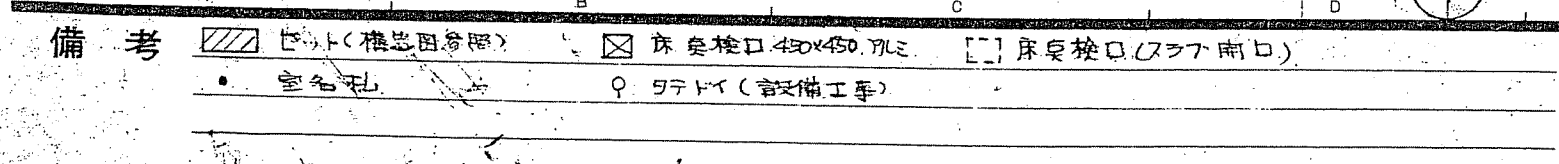 B C D
備考 ピット(構造図参照) 床点検口 450x450 アルミ 床点検口(スラブ開口)
室名札 タテドイ(設備工事)